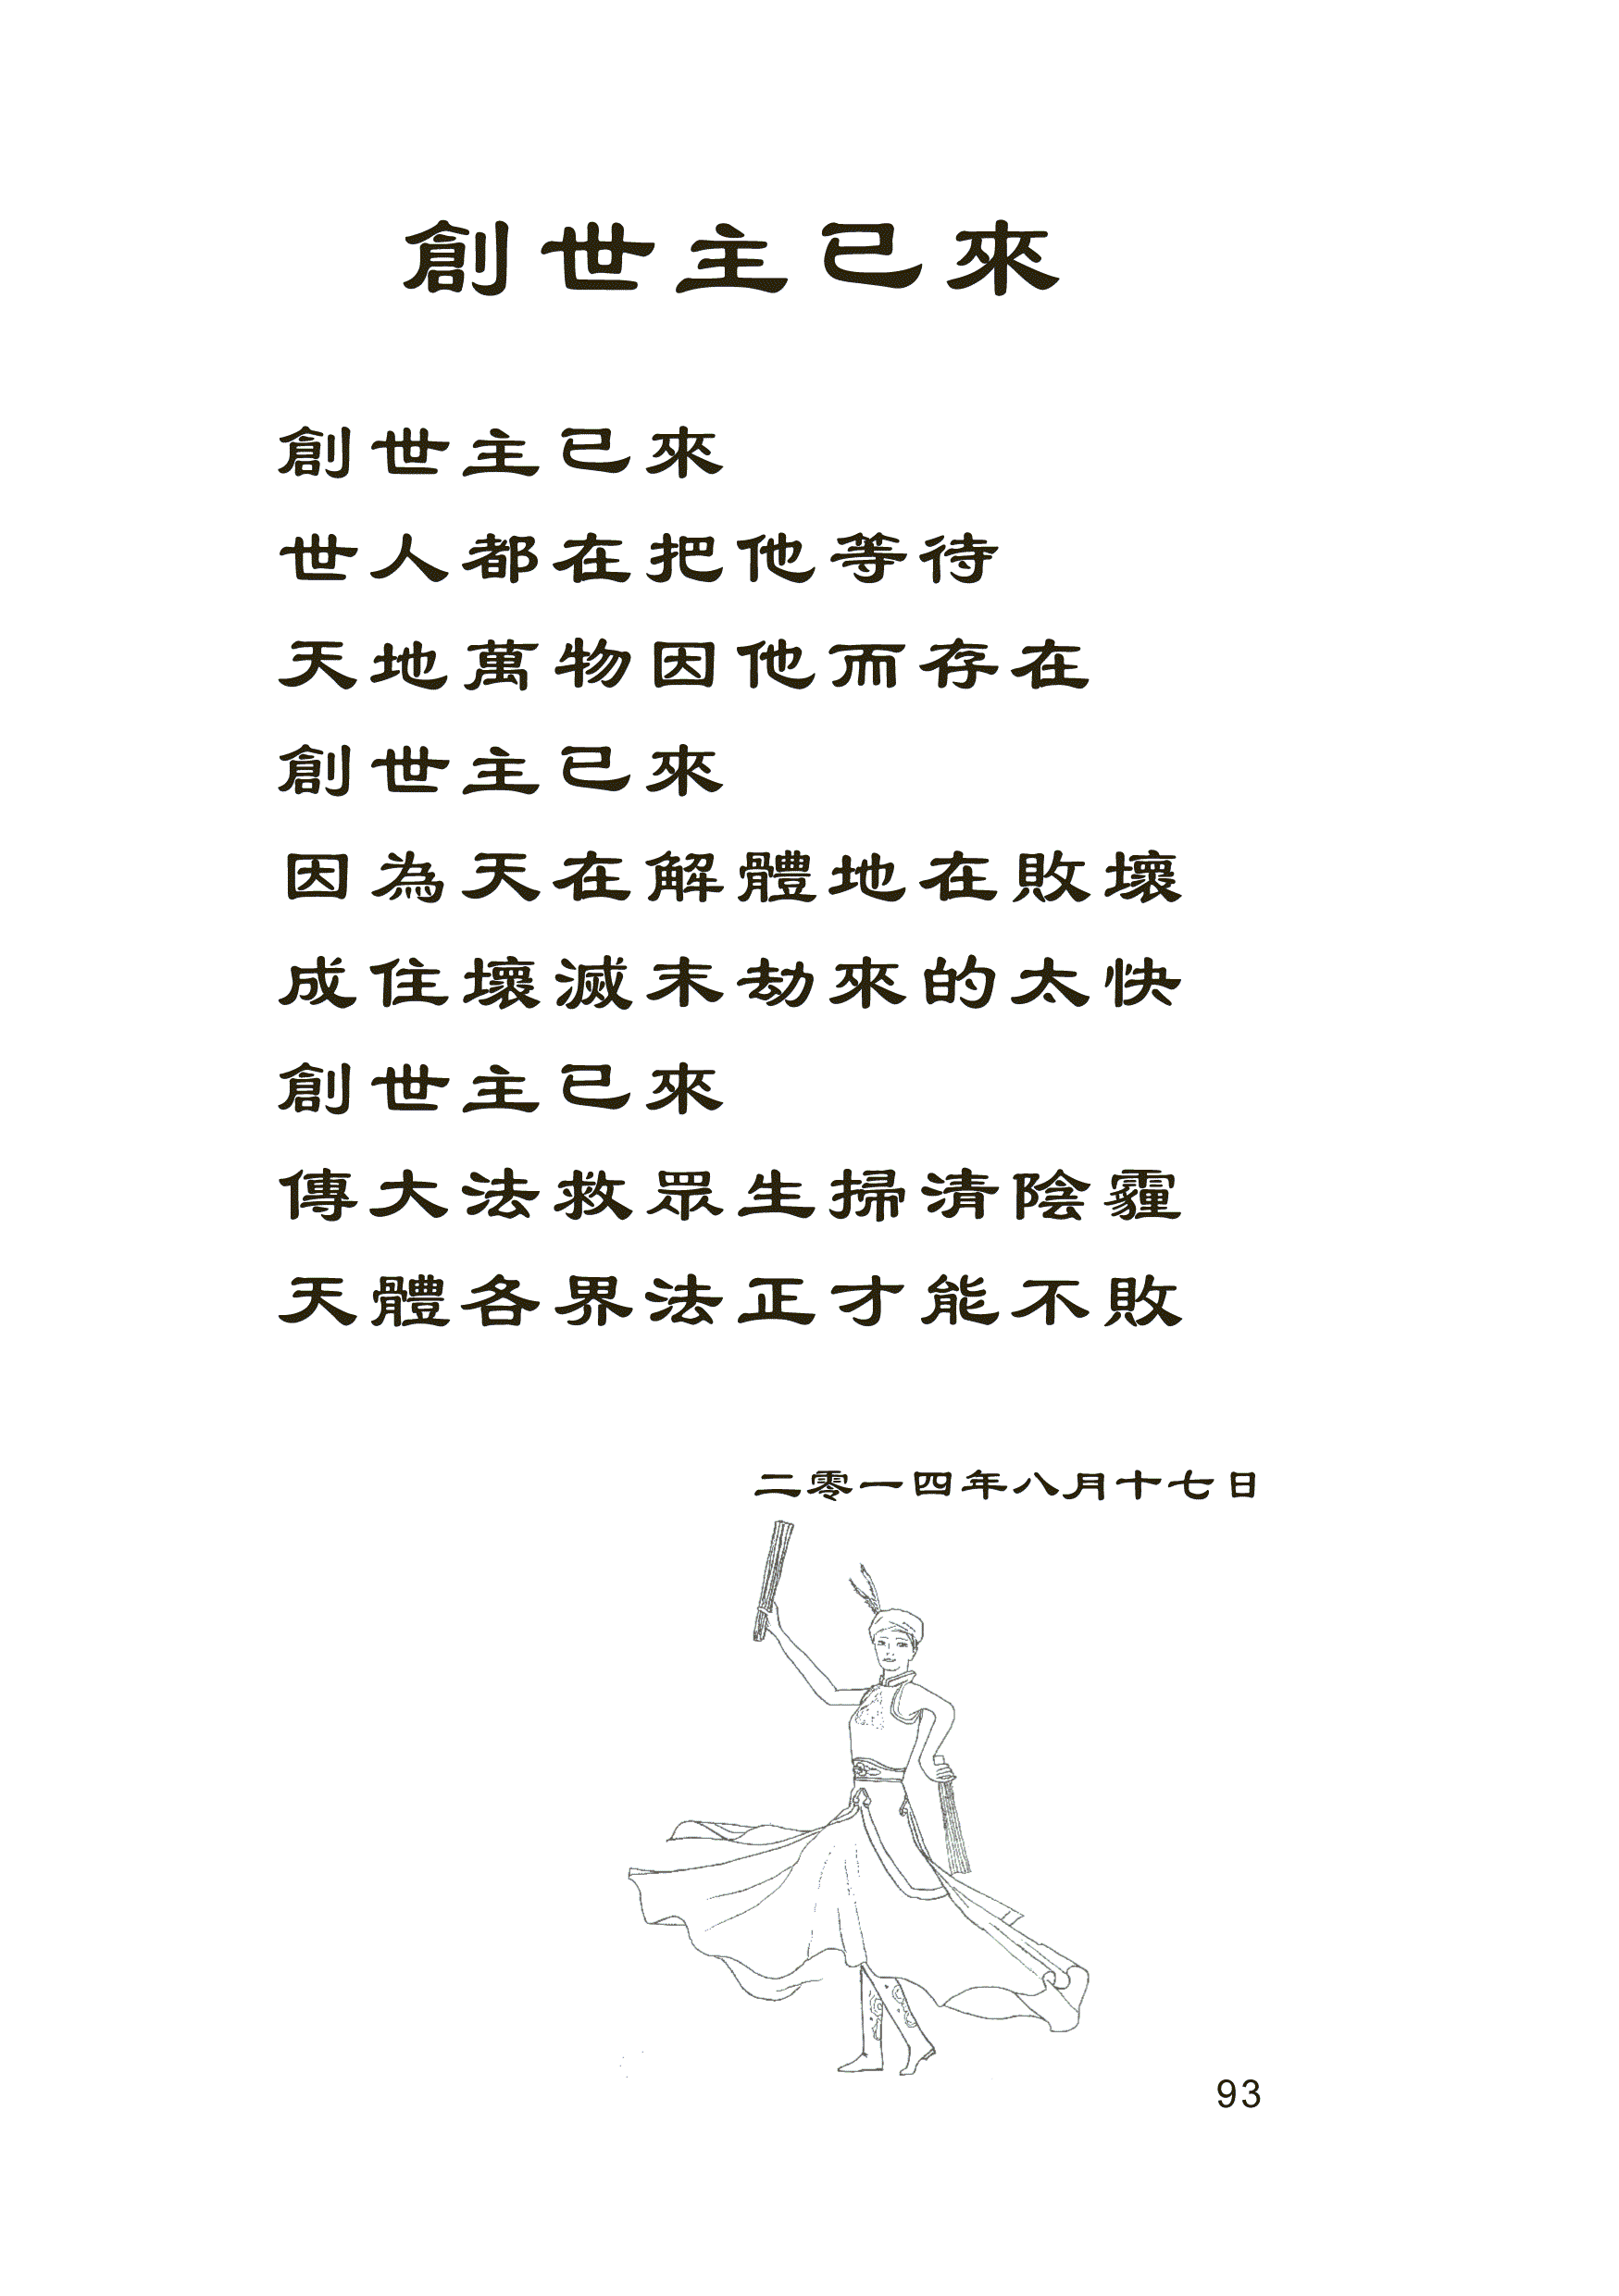 創世主已來
創世主已來
世人都在把他等待
天地萬物因他而存在
創世主已來
因為天在解體地在敗壞
成住壞滅末劫來的太快
創世主已來
傳大法救眾生掃清陰霾
天體各界法正才能不敗
二零一四年八月十七日
93